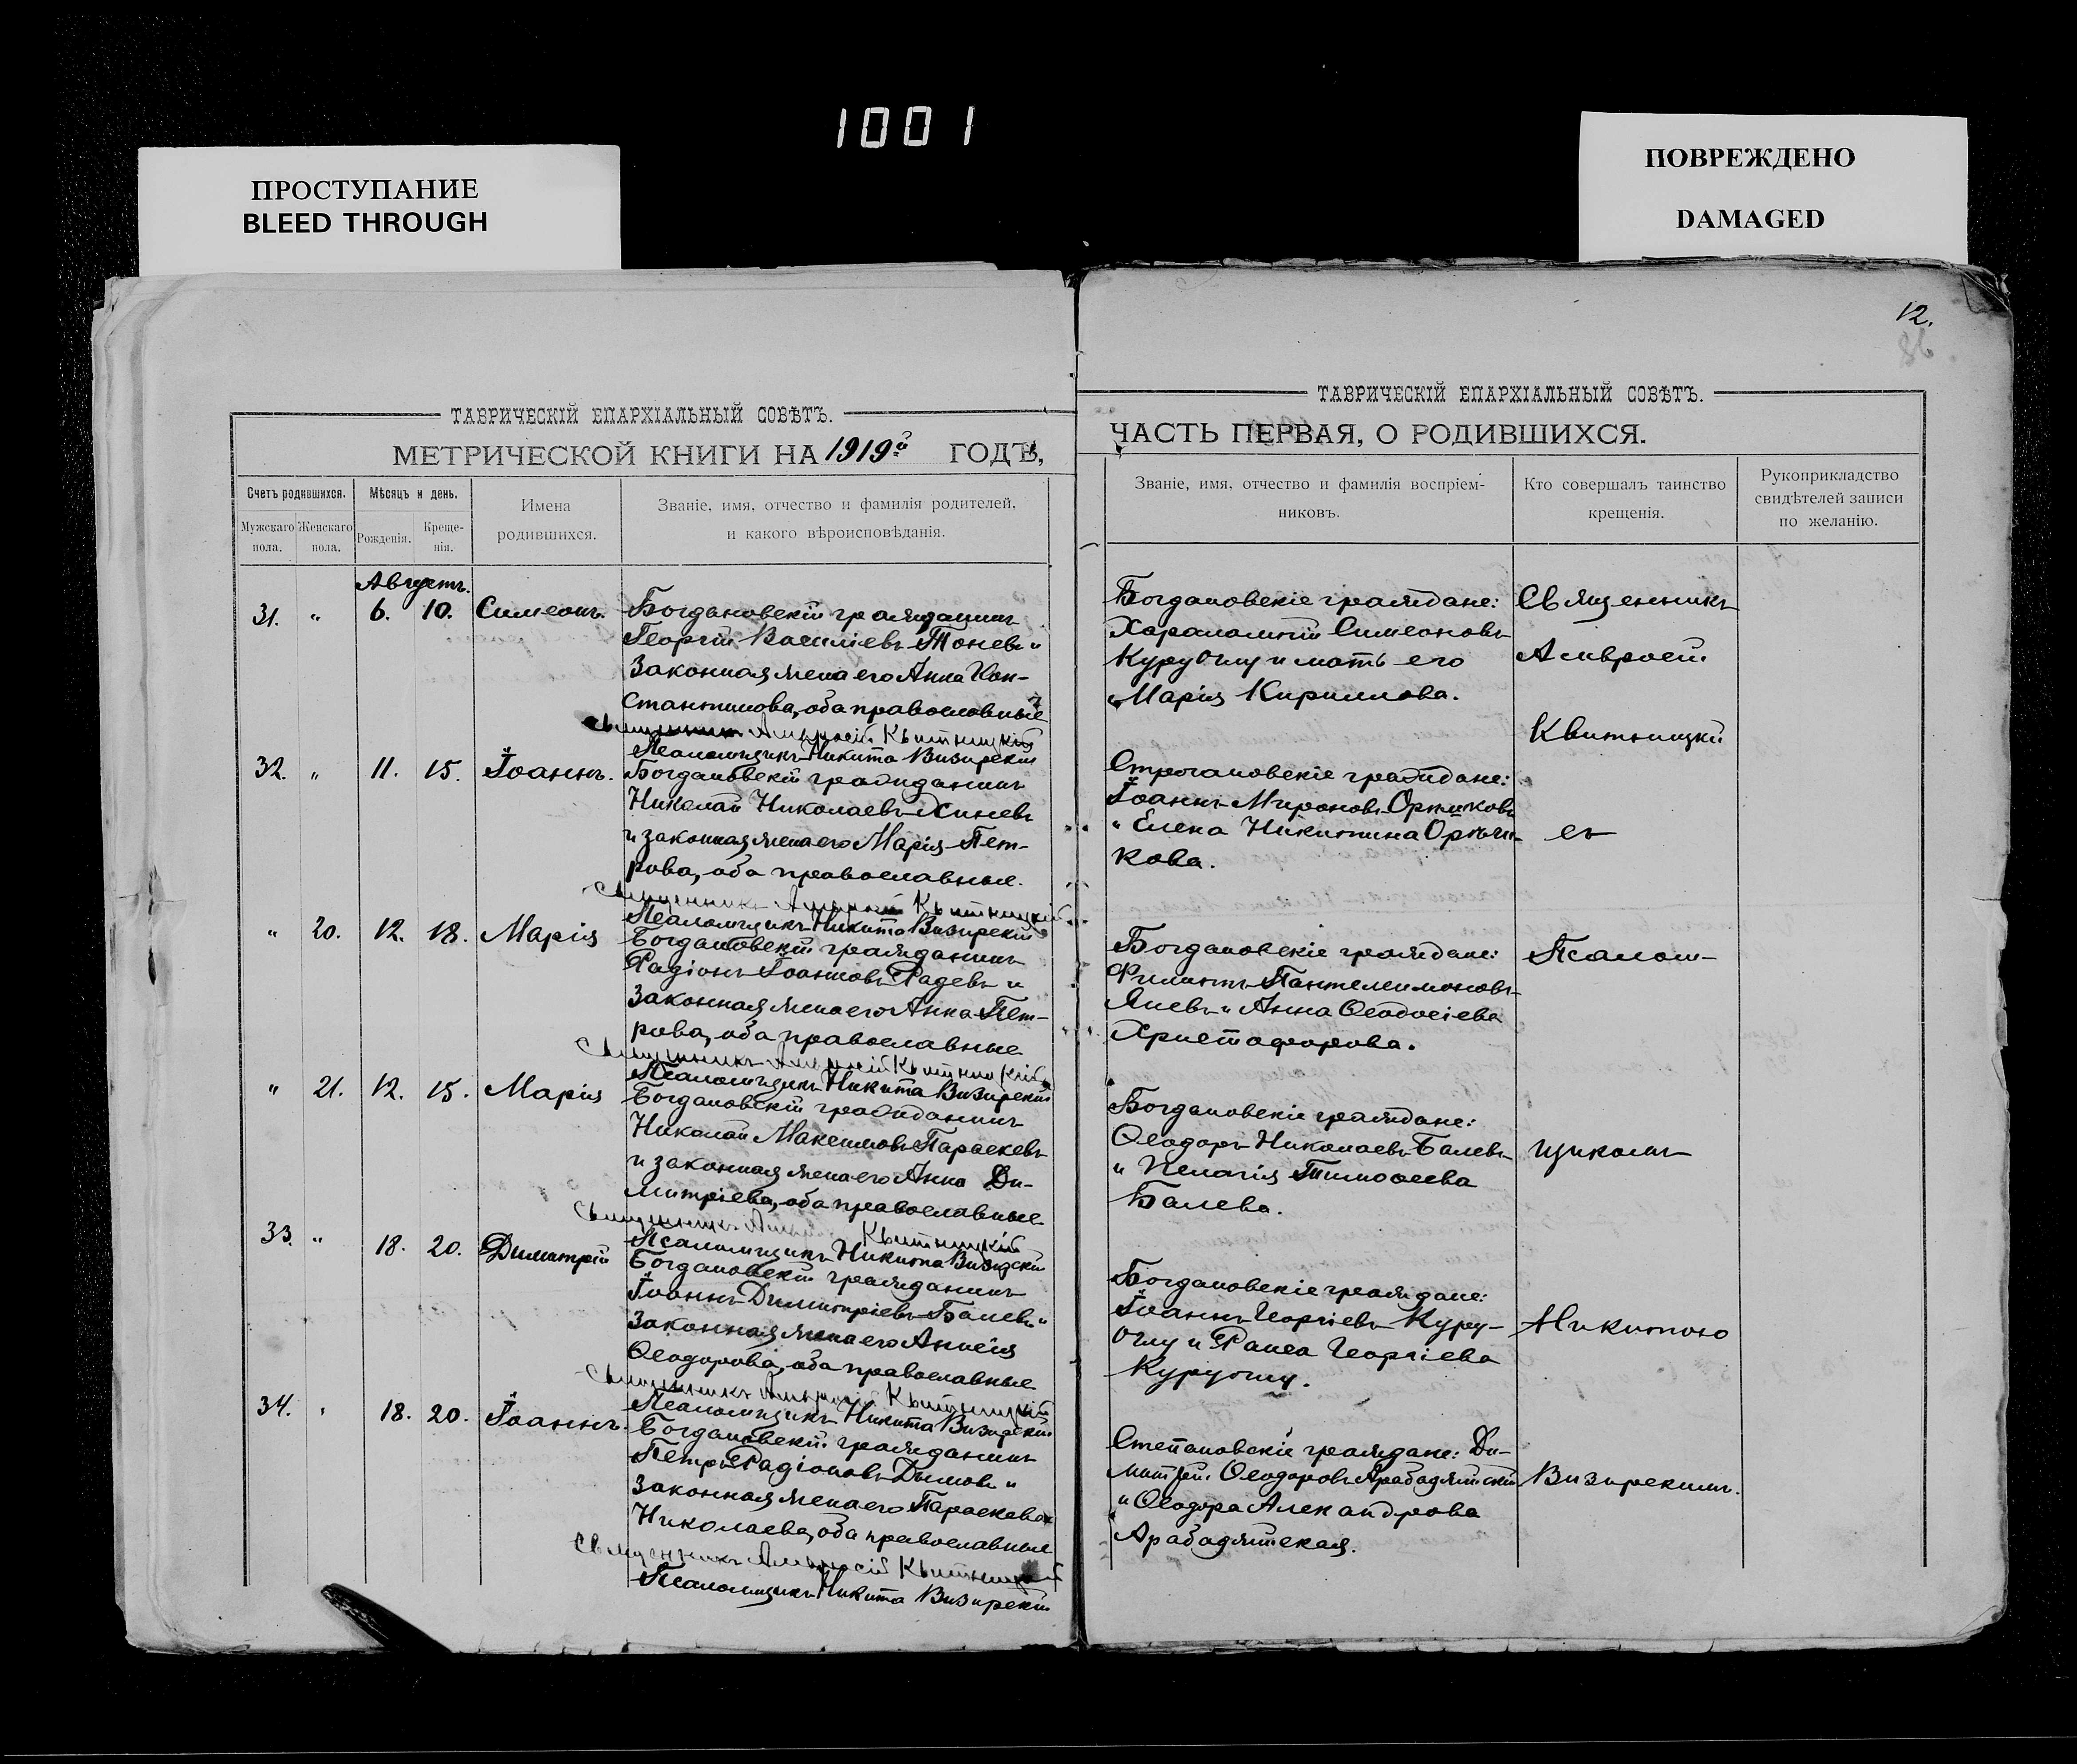 1001
ПРОСТУПАНИЕ
BLEED THROUGH
ПОВРЕЖДЕНО
DAMAGED
12.
86
ТАВРИЧЕСКІЙ ЕПАРХІАЛЬНЫЙ СОВѢТЪ.
МЕТРИЧЕСКОЙ КНИГИ НА 1919й ГОДЪ,
Счетъ родившихся.
Мужскаго пола.
Женскаго пола.
Мѣсяцъ и день.
Рожденія.
Креще-
нія.
Имена
родившихся.
Званіе, имя, отчество и фамилія родителей,
и какого вѣроисповѣданія.
Августъ.
31. " 6. 10. Симеонъ. Богдановскій гражданинъ
Георгій Василіевъ Тоневъ и
законная жена его Анна Кон-
стантинова, оба православные
Священникъ Амвросій Квитницкій
Псаломщикъ Никита Визирскій
32. " 11. 15. Іоаннъ. Богдановскій гражданинъ
Николай Николаевъ Хиневъ
и законная жена его Марія Пет-
рова, оба православные.
Священникъ Амвросій Квитницкій
Псаломщикъ Никита Визирскій
" 20. 12. 18. Марія Богдановскій гражданинъ
Радіонъ Іоанновъ Радевъ и
законная жена его Анна Пет-
рова, оба православные
Священникъ Амвросій Квитницкій
Псаломщикъ Никита Визирскій
" 21. 12. 15. Марія Богдановскій гражданинъ
Николай Максимовъ Параскевъ
и законная жена его Анна Ди-
митріева, оба православные
Священникъ Квитницкій
Псаломщикъ Никита Визирскій
33. " 18. 20. Димитрій Богдановскій гражданинъ
Іоаннъ Димитріевъ Балевъ и
законная жена его Анисія
Ѳеодорова, оба православные
Священникъ Амвросій Квитницкій
Псаломщикъ Никита Визирскій
34. " 18. 20. Іоаннъ. Богдановскій гражданинъ
Петръ Радіоновъ Дымовъ и
законная жена его Параскева
Николаева, оба православные
Священникъ Амвросій Квитницкій
Псаломщикъ Никита Визирскій
ТАВРИЧЕСКІЙ ЕПАРХІАЛЬНЫЙ СОВѢТЪ.
ЧАСТЬ ПЕРВАЯ, О РОДИВШИХСЯ.
Званіе, имя, отчество и фамилія воспріем-
никовъ.
Кто совершалъ таинство
крещенія.
Рукоприкладство
свидѣтелей записи
по желанію.
Богдановскіе граждане:
Харалампій Симеоновъ
Куруоглу и мать его
Марія Кириллова.
Строгановскіе граждане:
Іоаннъ Мироновъ Орликовъ
и Елена Никитина
кова.
Богдановскіе граждане:
Филиппъ Пантелеимоновъ
Яневъ и Анна Ѳеодосіева
Христофорова.
Богдановскіе граждане:
Ѳеодоръ Николаевъ Балевъ
и Пелагія Тимоѳеева
Балева.
Богдановскіе граждане:
Іоаннъ Георгіевъ Куру-
оглу и Раиса Георгіева
Куруоглу.
Степановскіе граждане: Ди-
митрій Ѳеодоровъ Арабаджійскій
и Ѳеодора Александрова
Арабаджійская.
Священникъ
Амвросій
Квитницкій
съ
Псалом-
щикомъ
Никитою
Визирскимъ.